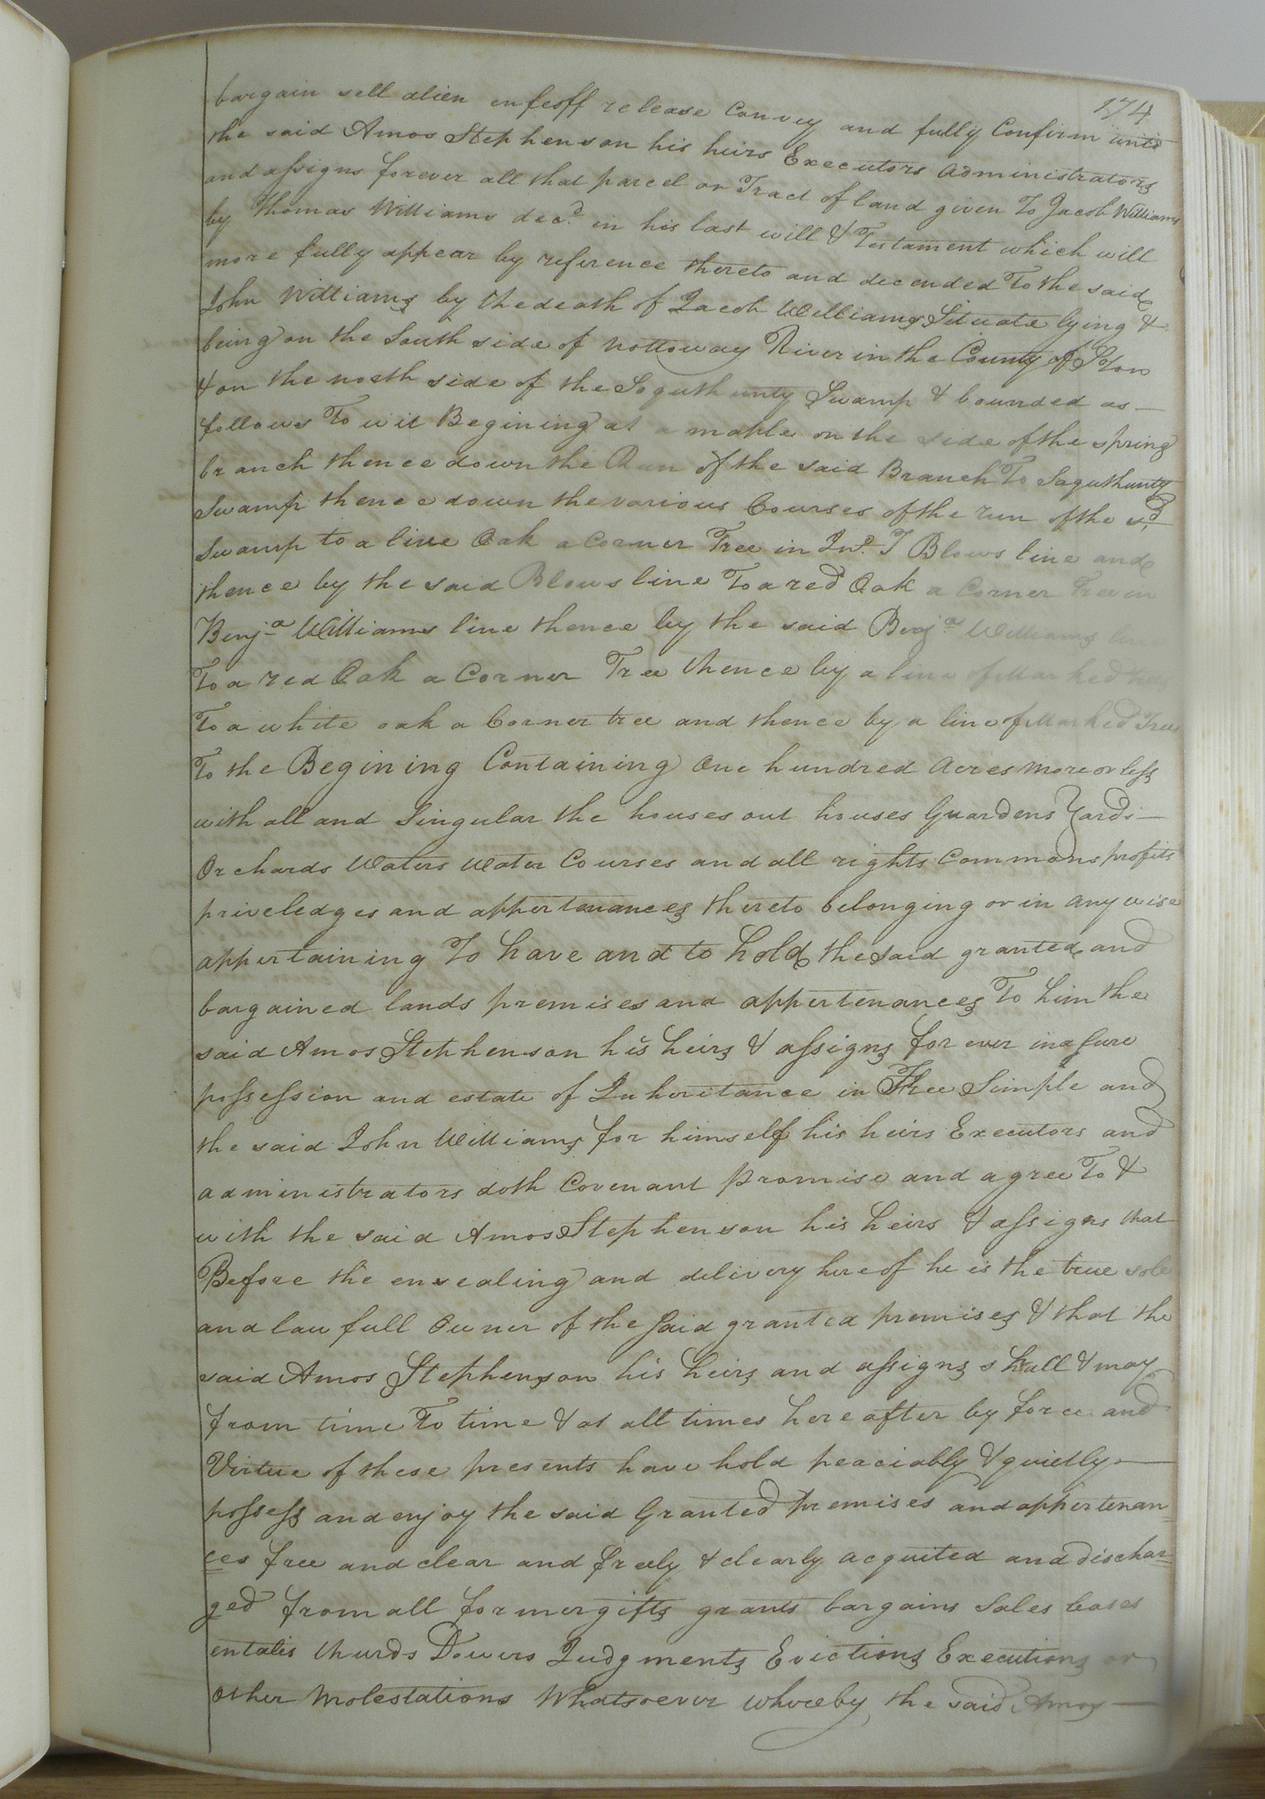 174
bargain sell alien enfeoff release Convey and fully Confirm unto
the said Amos Stephenson his heirs Executors Administrators
and assigns forever all that parcel or Tract of land given To Jacob Williams
by Thomas Williams decd. in his last will & Testament which will
more fully appear by reference thereto and decended To the said
John Williams by the death of Jacob Williams Situate lying &
being on the South side of nottoway River in the County of S Ton
& on the north side of the Saguthunty Swamp & bounded as
follows To wit Begining at a maple on the side of the spring
branch thence down the Run of the said Branch To Saguthunty
Swamp thence down the various Courses of the run of the sd.
Swamp to a live Oak a Corner Tree in Jno. T Blows line and
thence by the said Blows line To a red Oak a Corner Tree in
Benja Williams line thence by the said Benja Williams line
To a red Oak a Corner Tree thence by a line of Marked trees
To a white oak a Corner tree and thence by a line of Marked Trees
To the Begining Containing One hundred Acres more or less
with all and Singular the houses out houses Guardens Yards
Orchards Waters Water Courses and all rights Commons profits
priveledges and appertenances thereto belonging or in any wise
appertaining To have and to hold the said granted and
bargained lands premises and appertenances To him the
said Amos Stephenson his heirs & assigns for ever in a sure
possession and estate of Inheritance in Fhee Simple and
the said John Williams for himself his heirs Executors and
administrators doth Covenant promise and agree To &
with the said Amos Stephenson his heirs & assigns that
Before the ensealing and delivery hereof he is the true sole
and law full Owner of the said granted premises & that the
said Amos Stephenson his heirs and assigns shall & may
from time To time & at all times hereafter by force and
Virtue of these presents have hold peaciably & quietly
possess and enjoy the said Granted premises and appertenan=
ces free and clear and freely & clearly acquited and dischar=
ged from all former gifts grants bargains Sales leases
entales thurds Dowers Judgments Evictions Executions or
Other Molestations Whatsoever whereby the said Amos